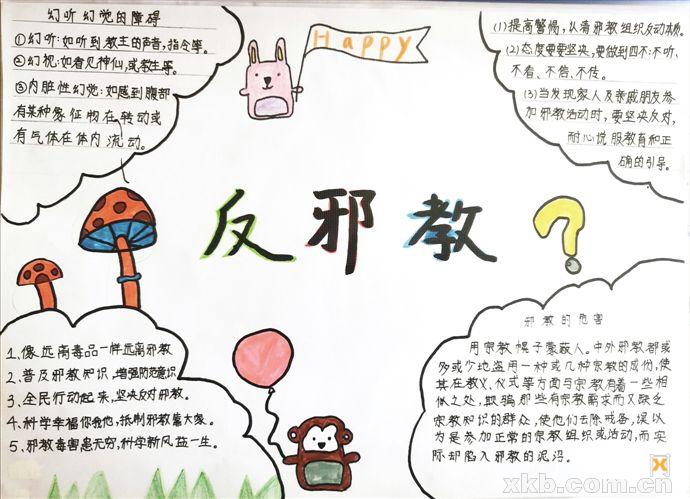 幻听幻觉的障碍
①幻听:如听到教主的声音,指令等。
②幻视:如看见神仙,或教主等。
③内脏性幻觉:如感到腹部
有某种象征物在转动或
有气体在体内流动。
Happy
(1)提高警惕,认清邪教组织反动本质。
(2)态度要要坚决,要做到四不:不听、
不看、不信、不传。
(3)当发现家人及亲戚朋友参
加邪教活动时,要坚决反对,
耐心说服教育和正
确的引导。
反邪教?
1、像远离毒品一样远离邪教
2、普及邪教知识,增强防范意识
3、全民行动起来,坚决反对邪教。
4、科学幸福你我他,抵制邪教靠大家。
5、邪教毒害患无穷,科学新风益一生。
邪教的危害
用宗教幌子蒙蔽人。中外邪教都或
多或少地盗用一种或几种宗教的成份,使
其在教义、仪式等方面与宗教有着一些相
似之处,欺骗那些有宗教需求而又缺乏
宗教知识的群众,使他们去除戒备,误以
为是参加正常的宗教组织或活动,而实
际却陷入邪教的泥沼。
xkb.com.cn